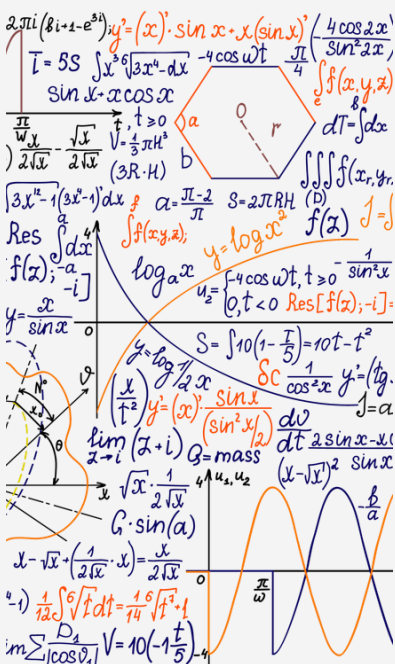 2πi(bi+1-e³ⁱ);
y'=(x)'·sinx+x(sinx)'
(-4cos2x/sin²2x)
ī=5S
∫x³ ⁶√3x⁴-dx
-4cosωt
π/4
sinx+xcosx
∫f(x,y,z)
e
π/ω
t, t≥0
a
O
r
dT=∫dx
x/2√x - √x/2√x
V=1/3πH³
b
(3R·H)
∫∫∫f(xᵣ,yᵣ,
(D)
√3x¹²-1(3x⁴-1)'dx
a=π-2/π
S=2πRH
f(z)
J=∫
Res
∫dx
∫f(x,y,z);
y=logx²
f(z);
-a
-i]
logₐx
u₂={-4cosωt, t≥0
0, t<0
-1/sin²x
Res[f(z);-i]=
y=x/sinx
0
S=∫10(1-t/5)=10t-t²
y=log1/2x
δc
1/cos²x
y'=(tg.
J=a
N°
θ
x
(x/t²)
y'=(x)'·sinx/(sin²x/2)
dv/dt
2sinx-x
sinx
lim(z+i)
z→i
Q=mass
(x-√x)²
√x·1/2√x
4
u₁,u₂
-b/a
G·sin(a)
x-√x+(1/2√x·x)=x/2√x
0
π/ω
-1)
1/12∫⁶√t dt=1/14 ⁶√t⁷+1
-4
V=10(-1t/5)